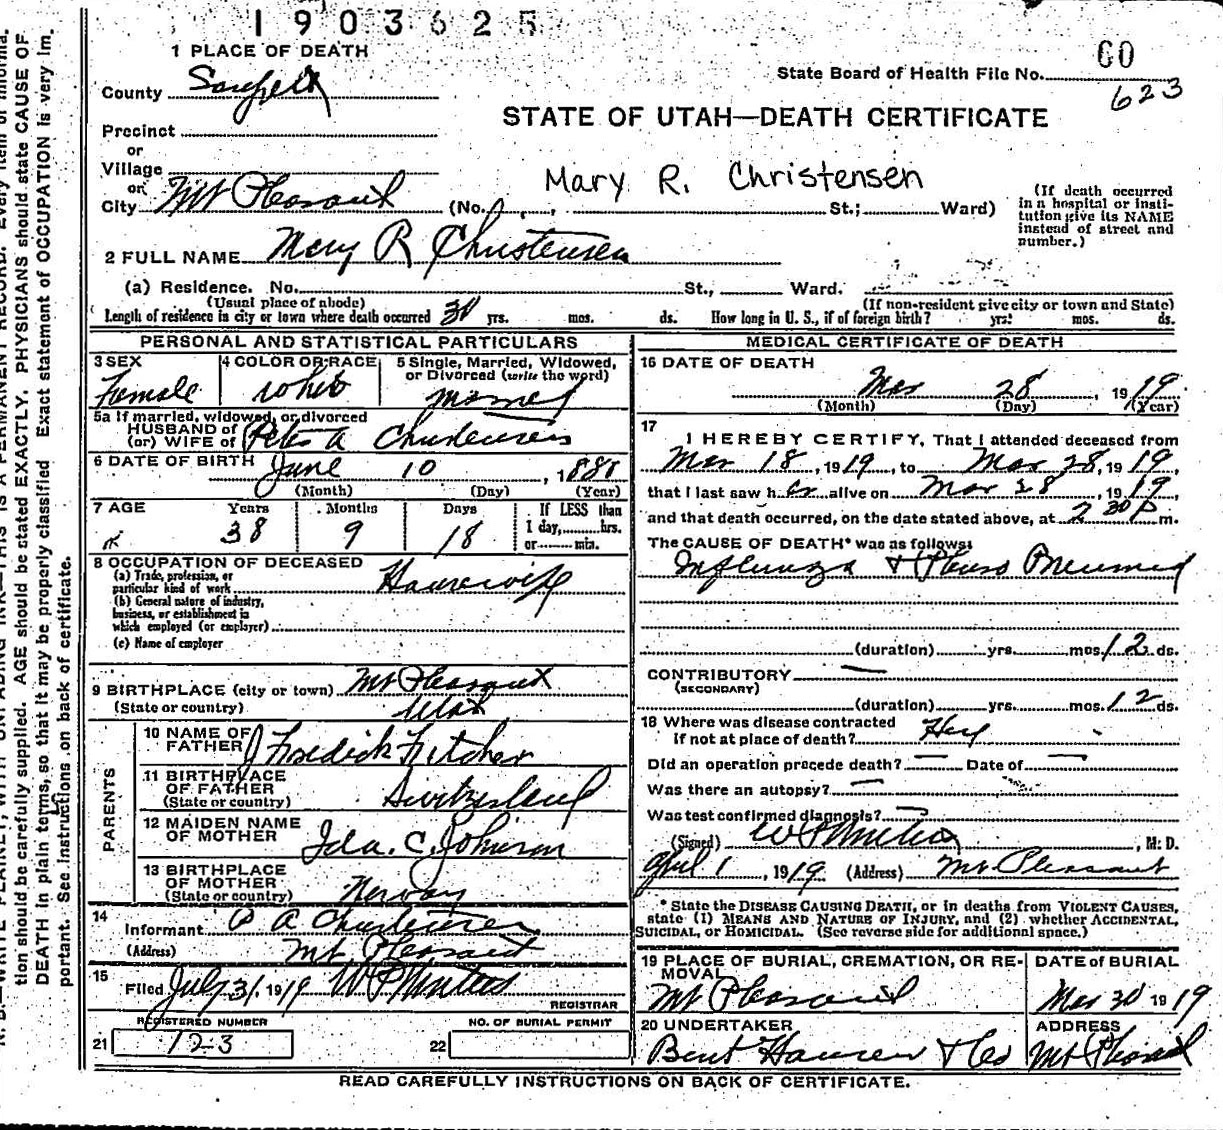 1903625
1 PLACE OF DEATH
60
State Board of Health File No.
623
County Sanpete
STATE OF UTAH—DEATH CERTIFICATE
Precinct
or
Village
or
City Mt Pleasant (No. St.; Ward)
Mary R. Christensen
(If death occurred in a hospital or institution give its NAME instead of street and number.)
2 FULL NAME Mary R Christensen
(a) Residence. No. St., Ward.
(Usual place of abode) (If non-resident give city or town and State)
Length of residence in city or town where death occurred yrs. mos. ds. How long in U. S., if of foreign birth? yrs. mos. ds.
PERSONAL AND STATISTICAL PARTICULARS
3 SEX Female
4 COLOR OR RACE white
5 Single, Married, Widowed, or Divorced (write the word) married
5a If married, widowed, or divorced
HUSBAND of
(or) WIFE of Peter A Christensen
6 DATE OF BIRTH June 10, 1880
(Month) (Day) (Year)
7 AGE Years 38 Months 9 Days 18
If LESS than
1 day, hrs.
or min.
8 OCCUPATION OF DECEASED
(a) Trade, profession, or
particular kind of work Housewife
(b) General nature of industry,
business, or establishment in
which employed (or employer)
(c) Name of employer
9 BIRTHPLACE (city or town) Mt Pleasant
(State or country) Utah
PARENTS
10 NAME OF
FATHER J Fredick
11 BIRTHPLACE
OF FATHER
(State or country) Switzerland
12 MAIDEN NAME
OF MOTHER Ida. C. Johnson
13 BIRTHPLACE
OF MOTHER
(State or country) Norway
14
Informant P A Christensen
(Address) Mt Pleasant
15
Filed July 31, 1919 W P Winters
REGISTRAR
REGISTERED NUMBER
21 123
NO. OF BURIAL PERMIT
22
MEDICAL CERTIFICATE OF DEATH
16 DATE OF DEATH
Mar 28, 1919
(Month) (Day) (Year)
17
I HEREBY CERTIFY, That I attended deceased from
Mar 18, 1919, to Mar 28, 1919,
that I last saw her alive on Mar 28, 1919
and that death occurred, on the date stated above, at 2 30 P m.
The CAUSE OF DEATH* was as follows:
Influenza & Pleuro Pneumonia
(duration) yrs. mos. 12 ds.
CONTRIBUTORY —
(SECONDARY)
(duration) yrs. mos. 12 ds.
18 Where was disease contracted
if not at place of death?
Did an operation precede death? — Date of —
Was there an autopsy? —
Was test confirmed diagnosis? —
(Signed) W P Winters, M. D.
April 1, 1919 (Address) Mt Pleasant
* State the DISEASE CAUSING DEATH, or in deaths from VIOLENT CAUSES,
state (1) MEANS AND NATURE OF INJURY, and (2) whether ACCIDENTAL,
SUICIDAL, or HOMICIDAL. (See reverse side for additional space.)
19 PLACE OF BURIAL, CREMATION, OR REMOVAL
Mt Pleasant
DATE of BURIAL
Mar 30 1919
20 UNDERTAKER
Bent Hansen & Co
ADDRESS
Mt Pleasant
READ CAREFULLY INSTRUCTIONS ON BACK OF CERTIFICATE.
tion should be carefully supplied. AGE should be stated EXACTLY. PHYSICIANS should state CAUSE OF
DEATH in plain terms, so that it may be properly classified. Exact statement of OCCUPATION is very im-
portant. See instructions on back of certificate.